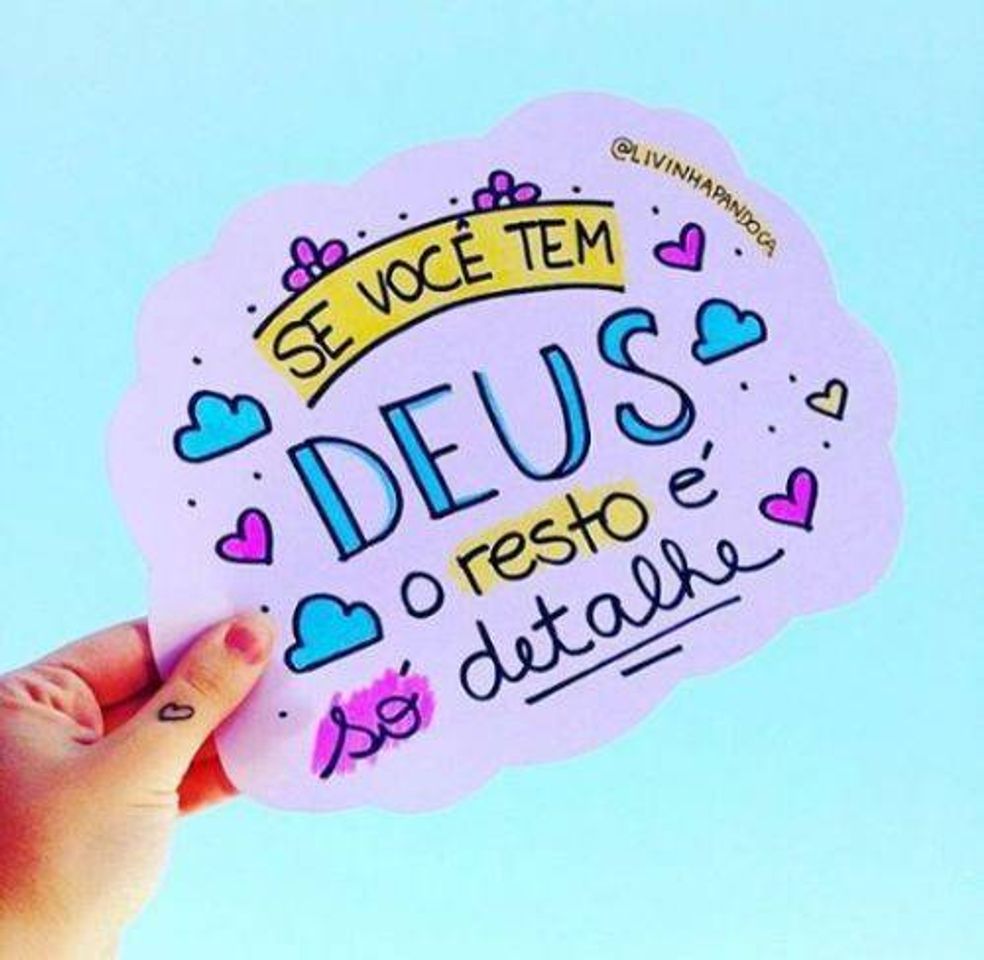 @LIVINHAPANDOCA
SE VOCÊ TEM
DEUS
o resto é
só detalhe